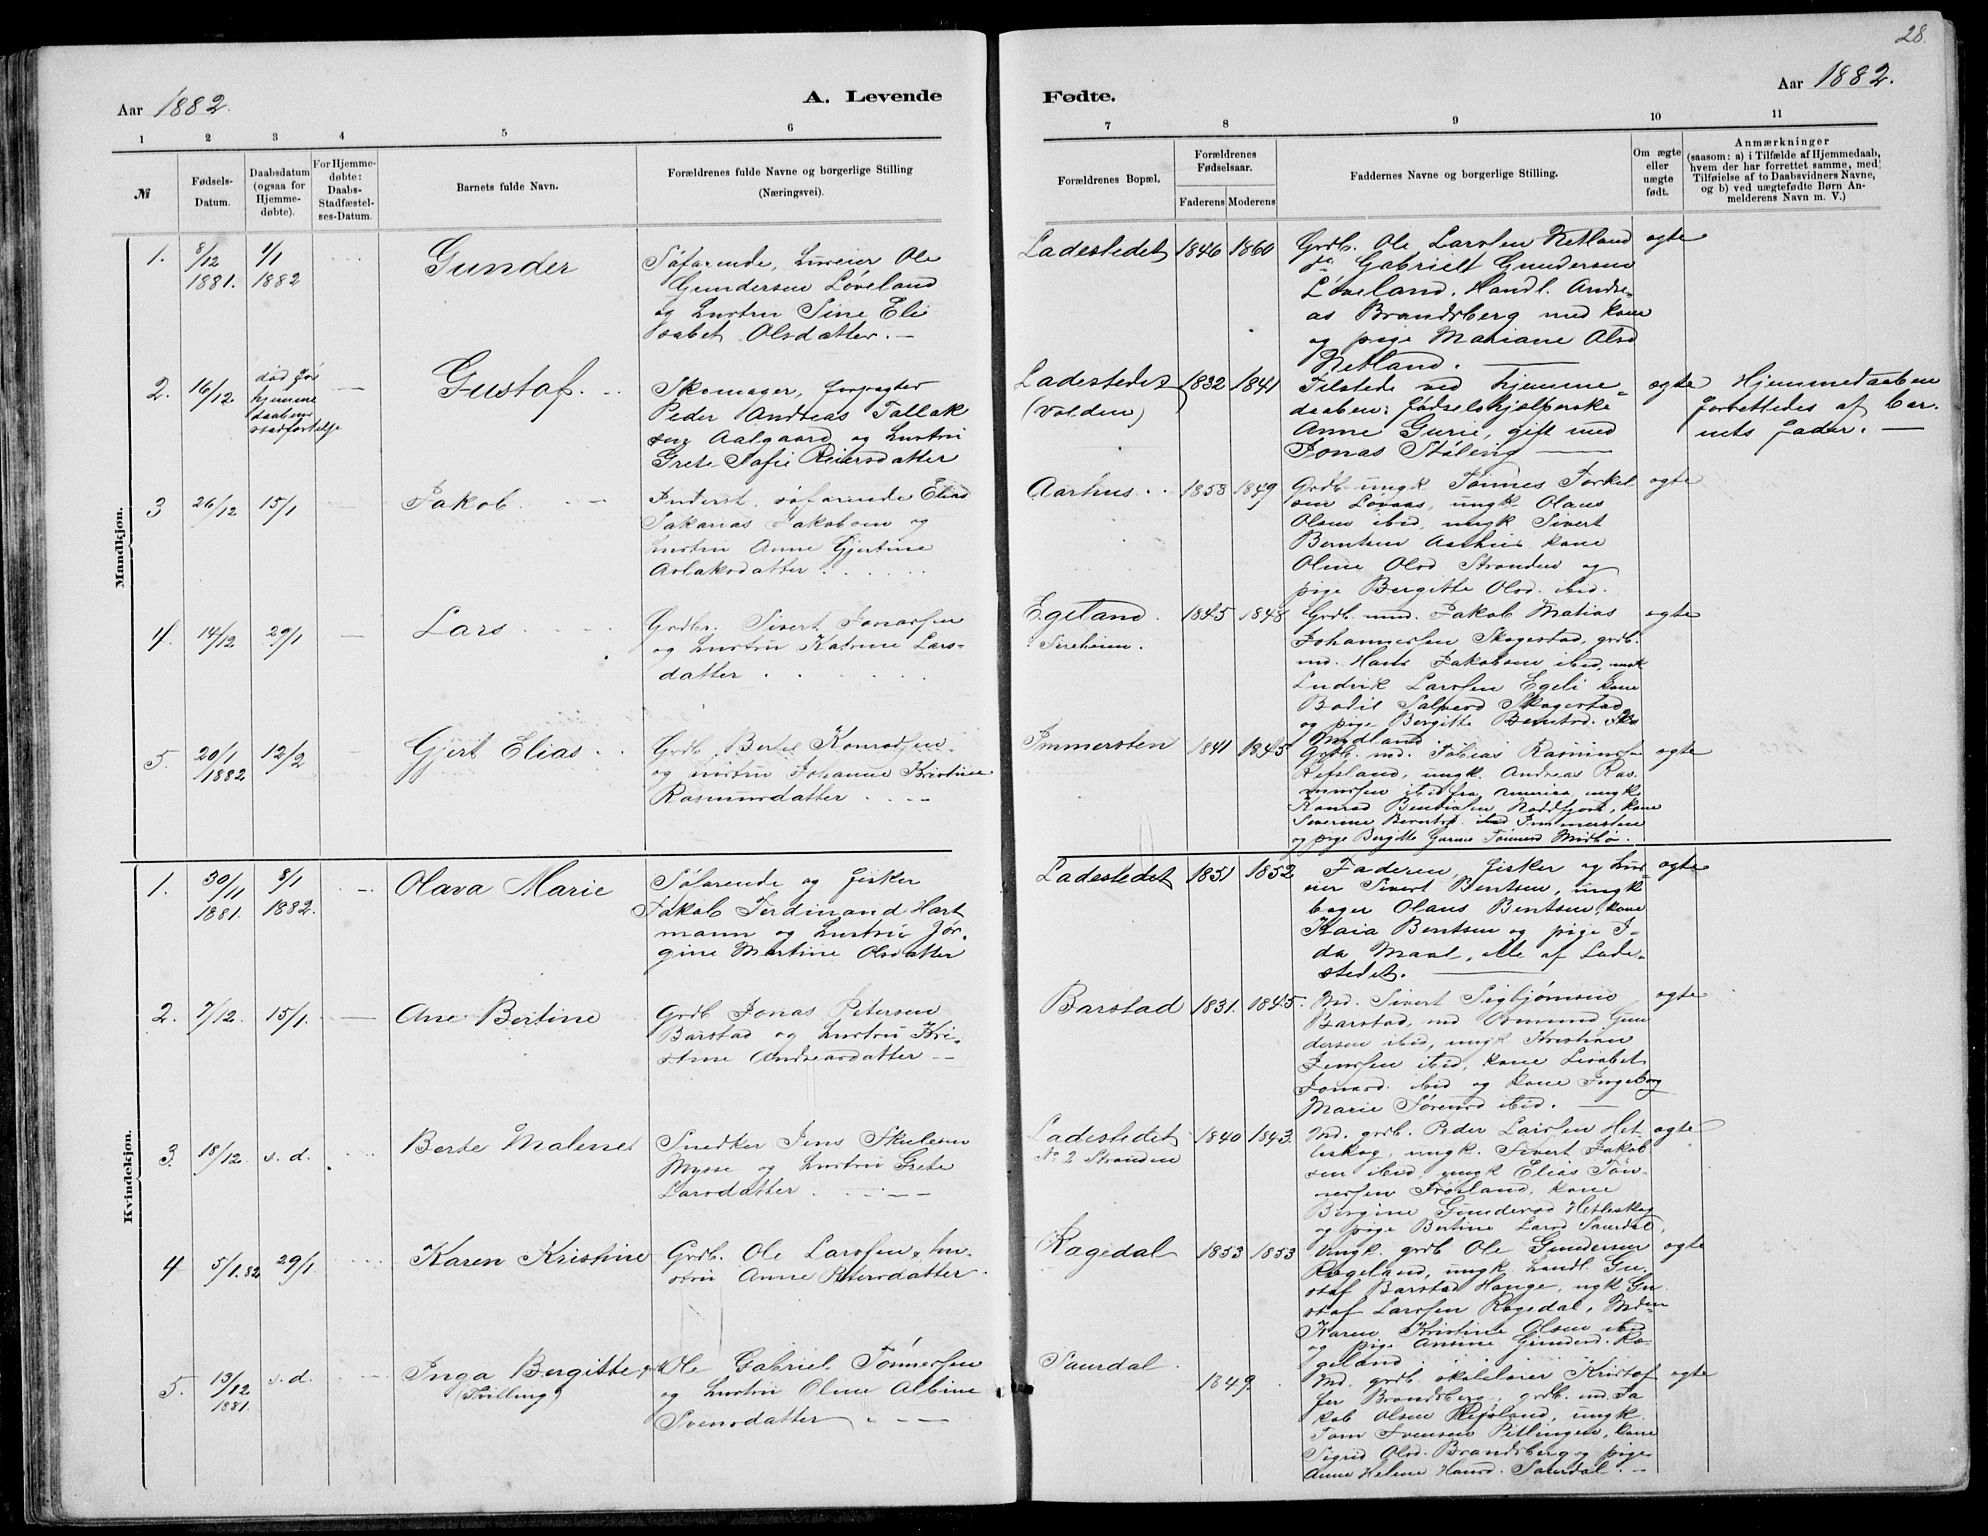 28.
Aar 1882.
A. Levende
Fødte.
Aar 1882.
1 2 3 4 5 6 7 8 9 10 11
№
Fødsels-
Datum.
Daabsdatum
(ogsaa for
Hjemme-
døbte).
For Hjemme-
døbte:
Daabs-
Stadfæstel-
ses-Datum.
Barnets fulde Navn.
Forældrenes fulde Navne og borgerlige Stilling
(Næringsvei).
Forældrenes Bopæl.
Forældrenes
Fødselsaar.
Faderens Moderens
Faddernes Navne og borgerlige Stilling.
Om ægte
eller
uægte
født.
Anmærkninger
(saasom: a) i Tilfælde af Hjemmedaab,
hvem der har forrettet samme, med
Tilføielse af to Daabsvidners Navne,
og b) ved uægtefødte Børn An-
melderens Navn m. V.)
Mandkjøn.
1. 8/12 1881. 1/1 1882
Gunder
Søfarende, Ole
Gundersen Løveland
og hustru Sine Eli
sabet Olsdatter. —
Ladestedet 1846 1860
Grdb. Ole Larssen Netland
Gabrielt Gundersen
Løveland. Handl. Andre-
as Brandsberg med kone
og pige Mariane Olsd
Netland.
ægte
2. 16/12
død før
hjemme
daabens
Gustaf.
Skomager, forpagter
Peder Andreas Tallak
sen Aalgaard og hustru
Grete Sofie Reiersdatter
Ladestedet
(Volden)
1832 1841
Tilstede ved hjemme-
daaben: fødselshjælperske
Anne Gurie, gift med
Jonas Støleng
ægte
Hjemmedaaben
forrettedes af bar-
nets fader. —
3 26/12 15/1
Jakob.
Inderst, søfarende Elias
Sakarias Jakobsen og
hustru Anne Gjertine
Aslaksdatter
Aarhus 1858 1849
Grdb ungk Tønnes Torkel
sen Løvaas, ungk. Olaus
Olsen ibid, ungk Sivert
Berntsen Aarhus kone
Oline Olsd Stranden og
pige Bergitte Olsd. ibid.
ægte
4. 14/12 29/1
Lars
Grdbr. Sivert Jonassen
og hustru Katrine Lars-
datter
Egeland.
Sireheien.
1845 1848
Grdb. md. Jakob Matias
Johannessen Skagestad, grdb.
md. Hans Jakobsen ibid, ungk
Ludvik Larssen Egeli kone
Bodil Salvesd Skagestad
og pige Bergitte Berntsd.
Modland
ægte
5. 20/1 1882 12/2
Gjert Elias
Grdb. Bertel Konradsen
og hustru Johanne Kristine
Rasmusdatter
Immersten 1841 1845
Grdb. md. Tobias Rasmussen
Refsland, ungk. Andreas Ras-
mussen ibid fra Amerika, ungk
Konrad Bendiksen Noddfjort, kone
Severine Berntsd. Immersten
og pige Bergitte Gurine Tønnesd Midbø.
ægte
Kvindekjøn.
1. 30/11 1881. 8/1 1882.
Olava Marie
Søfarende og fisker
Jakob Ferdinand Hart
mann og hustru Jør-
gine Martine Olsdatter
Ladestedet 1851 1852
Faderen, fisker og hus
eier Sivert Bentsen, ungk
bager Olaus Bentsen, kone
Kaia Bentsen og pige I-
da Maal, alle af Lade-
stedet.
ægte
2. 7/12. 15/1.
Ane Bertine
Grdb Jonas Petersen
Barstad og hustru Kri-
stine Andreasdatter —
Barstad 1831. 1845.
Md. Sivert Sigbjørnsen
Barstad, md Osmund Gun
dersen ibid, ungk Kristian
Jenssen ibid, kone Lisabet
Jonasd. ibid og kone Ingeborg
Marie Sørensd ibid. —
ægte
3. 18/12 s. d.
Berte Malene
Snedker Jens Skulesen
Mysse og hustru Grete
Larsdatter
Ladestedet
No 2 Stranden
1840 1843.
Md. grdb. Peder Larssen Het-
leskog, ungk. Sivert Jakob
sen ibid, ungk Elias Tøn-
nessen Frøiland, kone
Bergine Gundersd Hetleskog
og pige Bertine Larsd Saurdal,
ægte
4 5/1.82 29/1.
Karen Kristine
Grdb. Ole Larssen & hu-
stru Anne Petersdatter.
Ragedal 1853 1853
Ungk. grdb Ole Gundersen
Rageland, ungk handl. Gu-
staf Barstad Hauge, ugk Gu-
staf Larssen Ragedal,
Karen Kristine Olsen ibid
og pige Ansine Gundersd. Ra-
geland
ægte
5. 13/12 1881. s. d.
Inga Bergitte
(Tvilling)
Ole Gabriel Tønnessen
og hustru Oline Albine
Svensdatter
Saurdal. 1849.
Md. grdb. skolelærer Kristof
fer Brandsberg, grdb. md. Ja
kob Olsen Refsland, ungk.
Tom Svensen Petlingen, kone
Sigrid Olsd. Brandsberg og pige
Anne Helene Hansd. Saurdal.
ægte